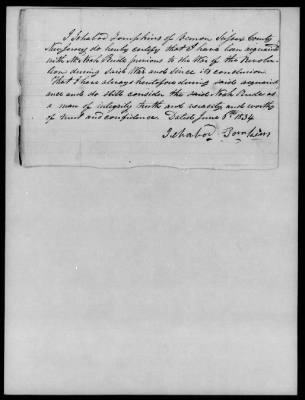 I Ichabod Tompkins of Vernon Sussex County
New Jersey do hereby certify that I have been acquainted
with Mr Noah Rude previous to the War of the Revolu-
tion during said War and since its conclusion
That I have always heretofore during said acquaint
ance and do still consider the said Noah Rude as
a man of integrity truth and veracity and worthy
of trust and confidence Dated June 6th 1834
Ichabod Tomkins